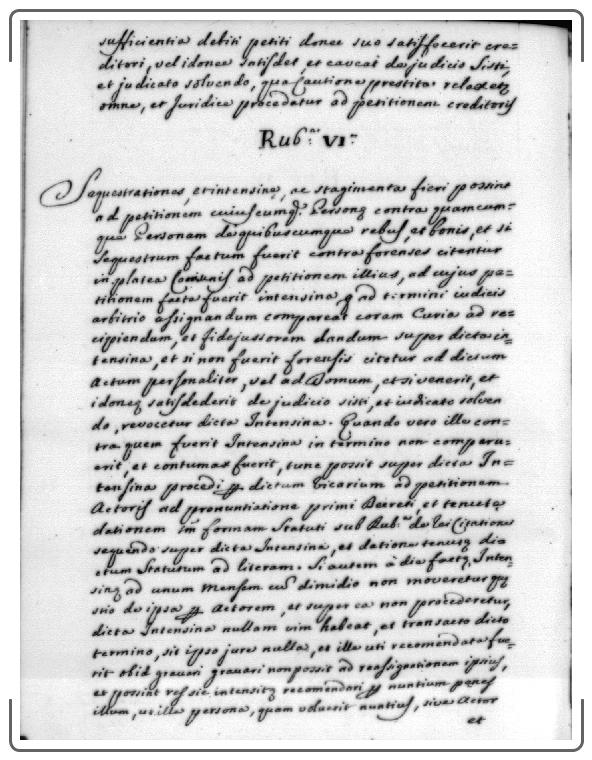 sufficientia debiti petiti donec suo satisfecerit cre=
ditori, vel idonee satisdet, et caveat de judicio Sisti,
et judicato solvendo, qua Cautione prestita relaxetꝫ
omne, et Juridice procedatur ad petitionem creditoris
Rub.ᵃ VI.ᵃ
Sequestrationes, et intensinę, ac stagimenta fieri possint
ad petitionem cuiuscumq. Personę contra quamcum-
que Personam de quibuscumque rebus, et bonis, et si
sequestrum factum fuerit contra forenses citentur
in platea Comunis ad petitionem illius, ad cujus pe=
titionem facta fuerit intensina q ad termini iudicis
arbitrio assignandum compareat coram Curia ad re=
cipiendum, et fidejussorem dandum super dicta in=
tensina, et si non fuerit forensis citetur ad dictum
Actum personaliter, vel ad Domum, et si venerit, et
idoneę satisdederit de judicio sisti, et iudicato solven
do, revocetur dicta Intensina. Quando vero ille con=
tra quem fuerit Intensina in termino non comparu=
erit, et contumax fuerit, tunc possit super dicta In=
tensina procedi ꝑ dictum Vicarium ad petitionem
Actoris ad pronuntiatione primi Decreti, et tenutę
dationem in formam Statuti sub Rub.ᵃ de Citatione
sequendo super dicta Intensina, et datione tenutę di=
ctum Statutum ad literam. Si autem à die factę Inten=
sinę ad unum Mensem cū dimidio non moveretur quę
stio de ipsa ꝑ Actorem, et super ea non procederetur,
dicta Intensina nullam vim habeat, et transacto dicto
termino, sit ipso jure nulla, et ille uti recomendata fue=
rit obid gravari gravari non possit ad reassignationem ipsius,
et possint res sic intensitę recomendari ꝑ nuntium penes
illum, ut illa persona, quam voluerit nuntius, sive Actor
et